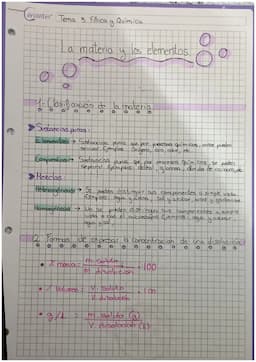 Tema 3. Física y Química
La materia y los elementos.
1. Clasificación de la materia
Sustancias puras:
Elementos → Sustancias puras que por procesos químicos, no se pueden
separar. Ejemplos: Oxígeno, oro, cobre, etc.
Compuestos → Sustancias puras que por procesos químicos, se pueden
separar. Ejemplos: dióxido de carbono, etc.
Mezclas
Heterogéneas → Se pueden distinguir sus componentes a simple vista.
Ejemplo: agua y arena, sal y
Homogéneas → No se pueden distinguir sus componentes a simple
vista o con el microscopio. Ejemplo: agua y
agua y sal.
2. Formas de expresar la concentración de una disolución
% masa = m. soluto / m. disolución · 100
% Volumen = V. soluto / V. disolución · 100
g/L = m. soluto (g) / V. disolución (L)